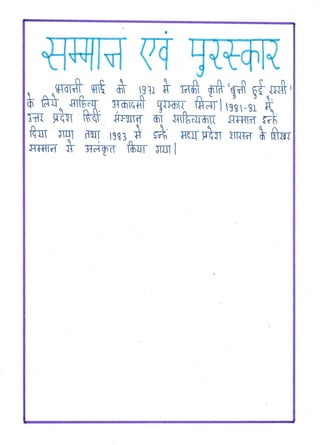 सम्मान एवं पुरस्कार
भवानी भाई को 1972 में उनकी कृति 'बुनी हुई रस्सी'
के लिये साहित्य अकादमी पुरस्कार मिला। 1981-82 में
उत्तर प्रदेश हिंदी संस्थान का साहित्यकार सम्मान इन्हें
दिया गया तथा 1983 में इन्हें मध्य प्रदेश शासन के शिखर
सम्मान से अलंकृत किया गया।